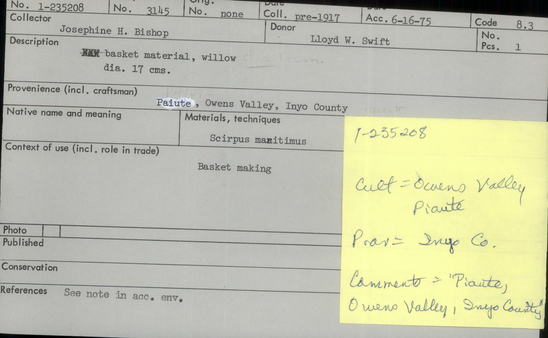 No. 1-235208 No. 3145 No. none Coll. pre-1917 Acc. 6-16-75 Code 8.3
Collector Donor No.
Josephine H. Bishop Lloyd W. Swift Pcs. 1
Description
basket material, willow
dia. 17 cms.
Provenience (incl. craftsman)
Paiute, Owens Valley, Inyo County
Native name and meaning Materials, techniques
Scirpus maritimus
Context of use (incl. role in trade)
Basket making
Photo
Published
Conservation
References See note in acc. env.
1-235208
Cult = Owens Valley
Piaute
Prov = Inyo Co.
Comments = "Piaute,
Owens Valley, Inyo County"